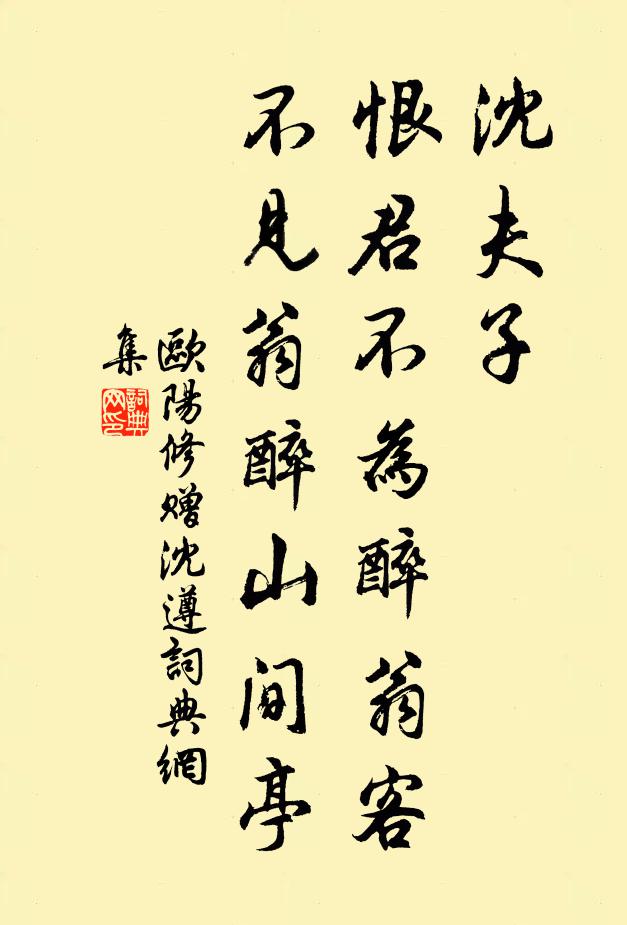 沈夫子
恨君不為醉翁客
不見翁醉山间亭
歐陽修赠沈遵詞典網
集
詞典
网印